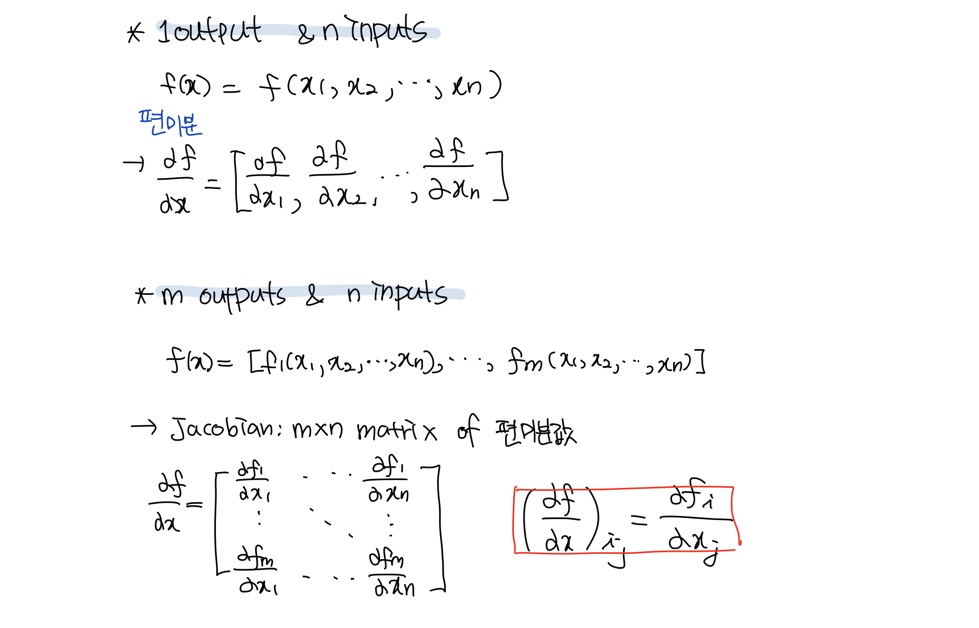 * 1 output & n inputs
f(x) = f(x₁, x₂, ..., xn)
편미분
→ ∂f/∂x = [∂f/∂x₁, ∂f/∂x₂, ..., ∂f/∂xn]
* m outputs & n inputs
f(x) = [f₁(x₁, x₂, ..., xn), ..., fm(x₁, x₂, ..., xn)]
→ Jacobian: m×n matrix of 편미분값
∂f/∂x = [∂f₁/∂x₁ ... ∂f₁/∂xn
⋮ ⋱ ⋮
∂fm/∂x₁ ... ∂fm/∂xn]
(∂f/∂x)ij = ∂fi/∂xj